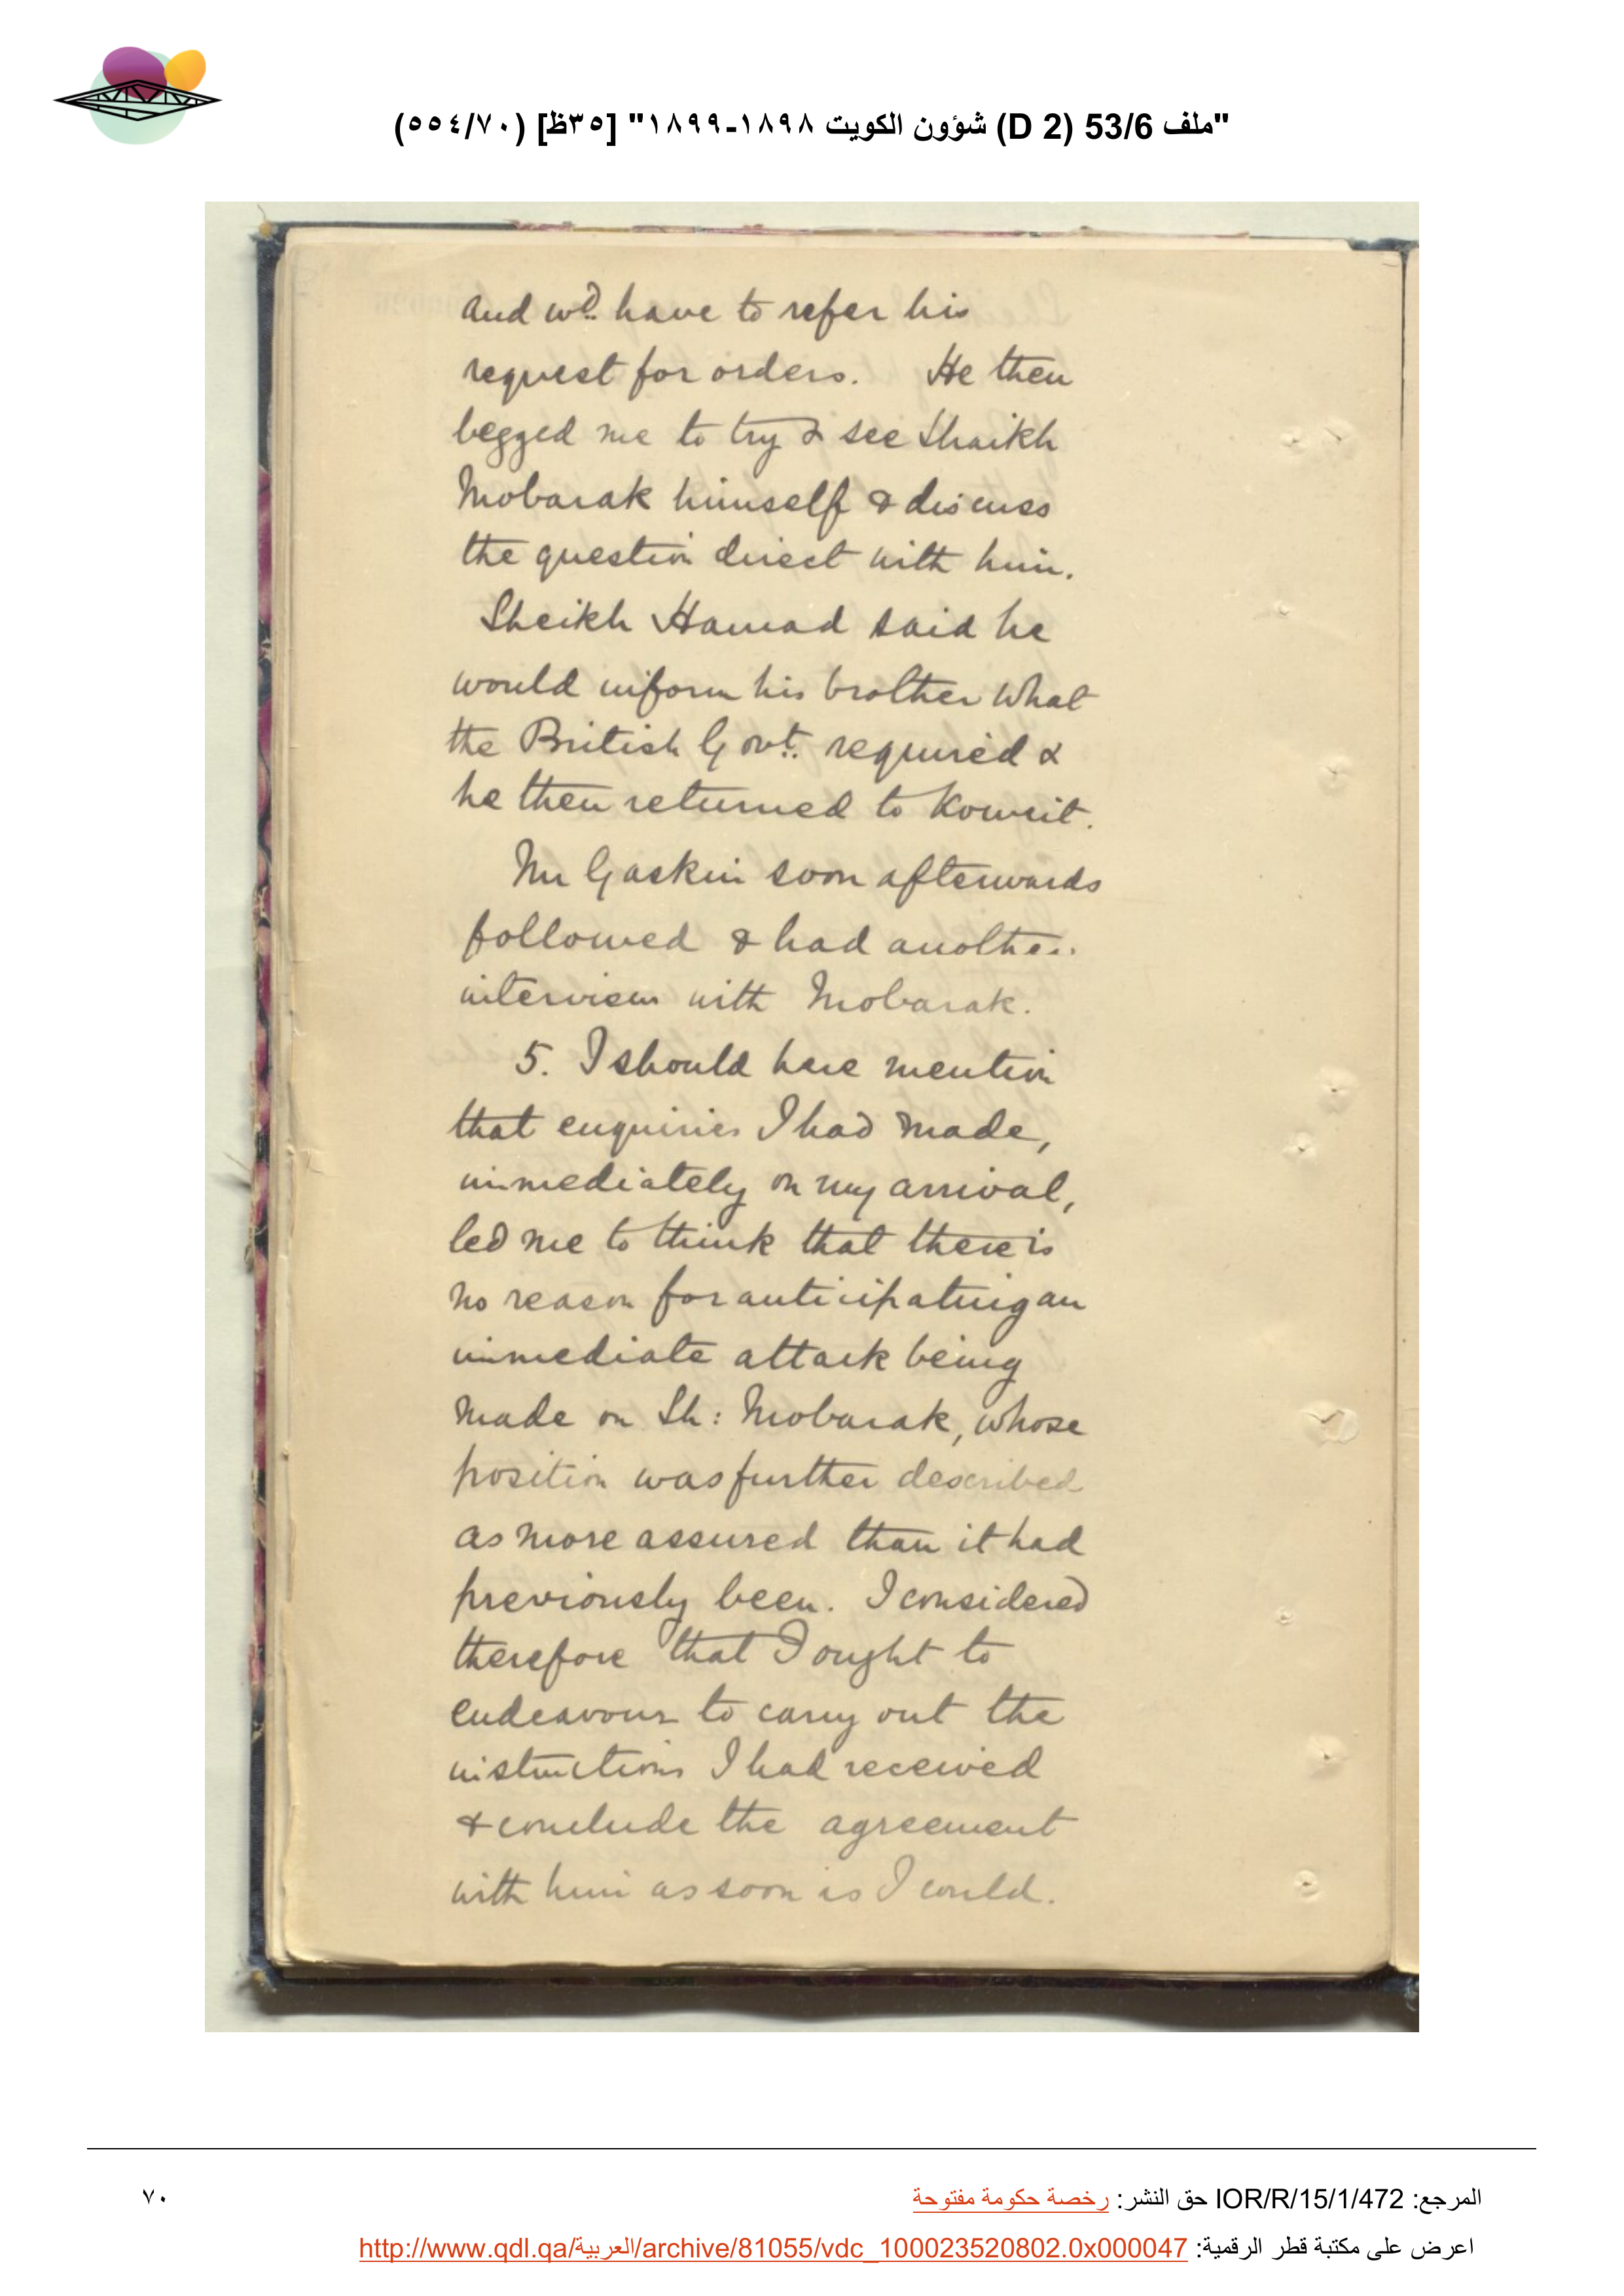 "ملف 53/6 (D 2) شؤون الكويت ١٨٩٨-١٨٩٩" [٣٥ظ] (٥٥٤/٧٠)
and wd. have to refer his
request for orders. He then
begged me to try & see Shaikh
Mobarak himself & discuss
the question direct with him.
Sheikh Hamad said he
would inform his brother what
the British Govt. required &
he then returned to Koweit.
Mr Gaskin soon afterwards
followed & had another
interview with Mobarak.
5. I should here mention
that enquiries I had made,
immediately on my arrival,
led me to think that there is
no reason for anticipating an
immediate attack being
made on Sh: Mobarak, whose
position was further described
as more assured than it had
previously been. I considered
therefore that I ought to
endeavour to carry out the
instructions I had received
& conclude the agreement
with him as soon as I could.
المرجع: IOR/R/15/1/472 حق النشر: رخصة حكومة مفتوحة
٧٠
اعرض على مكتبة قطر الرقمية: http://www.qdl.qa/العربية/archive/81055/vdc_100023520802.0x000047